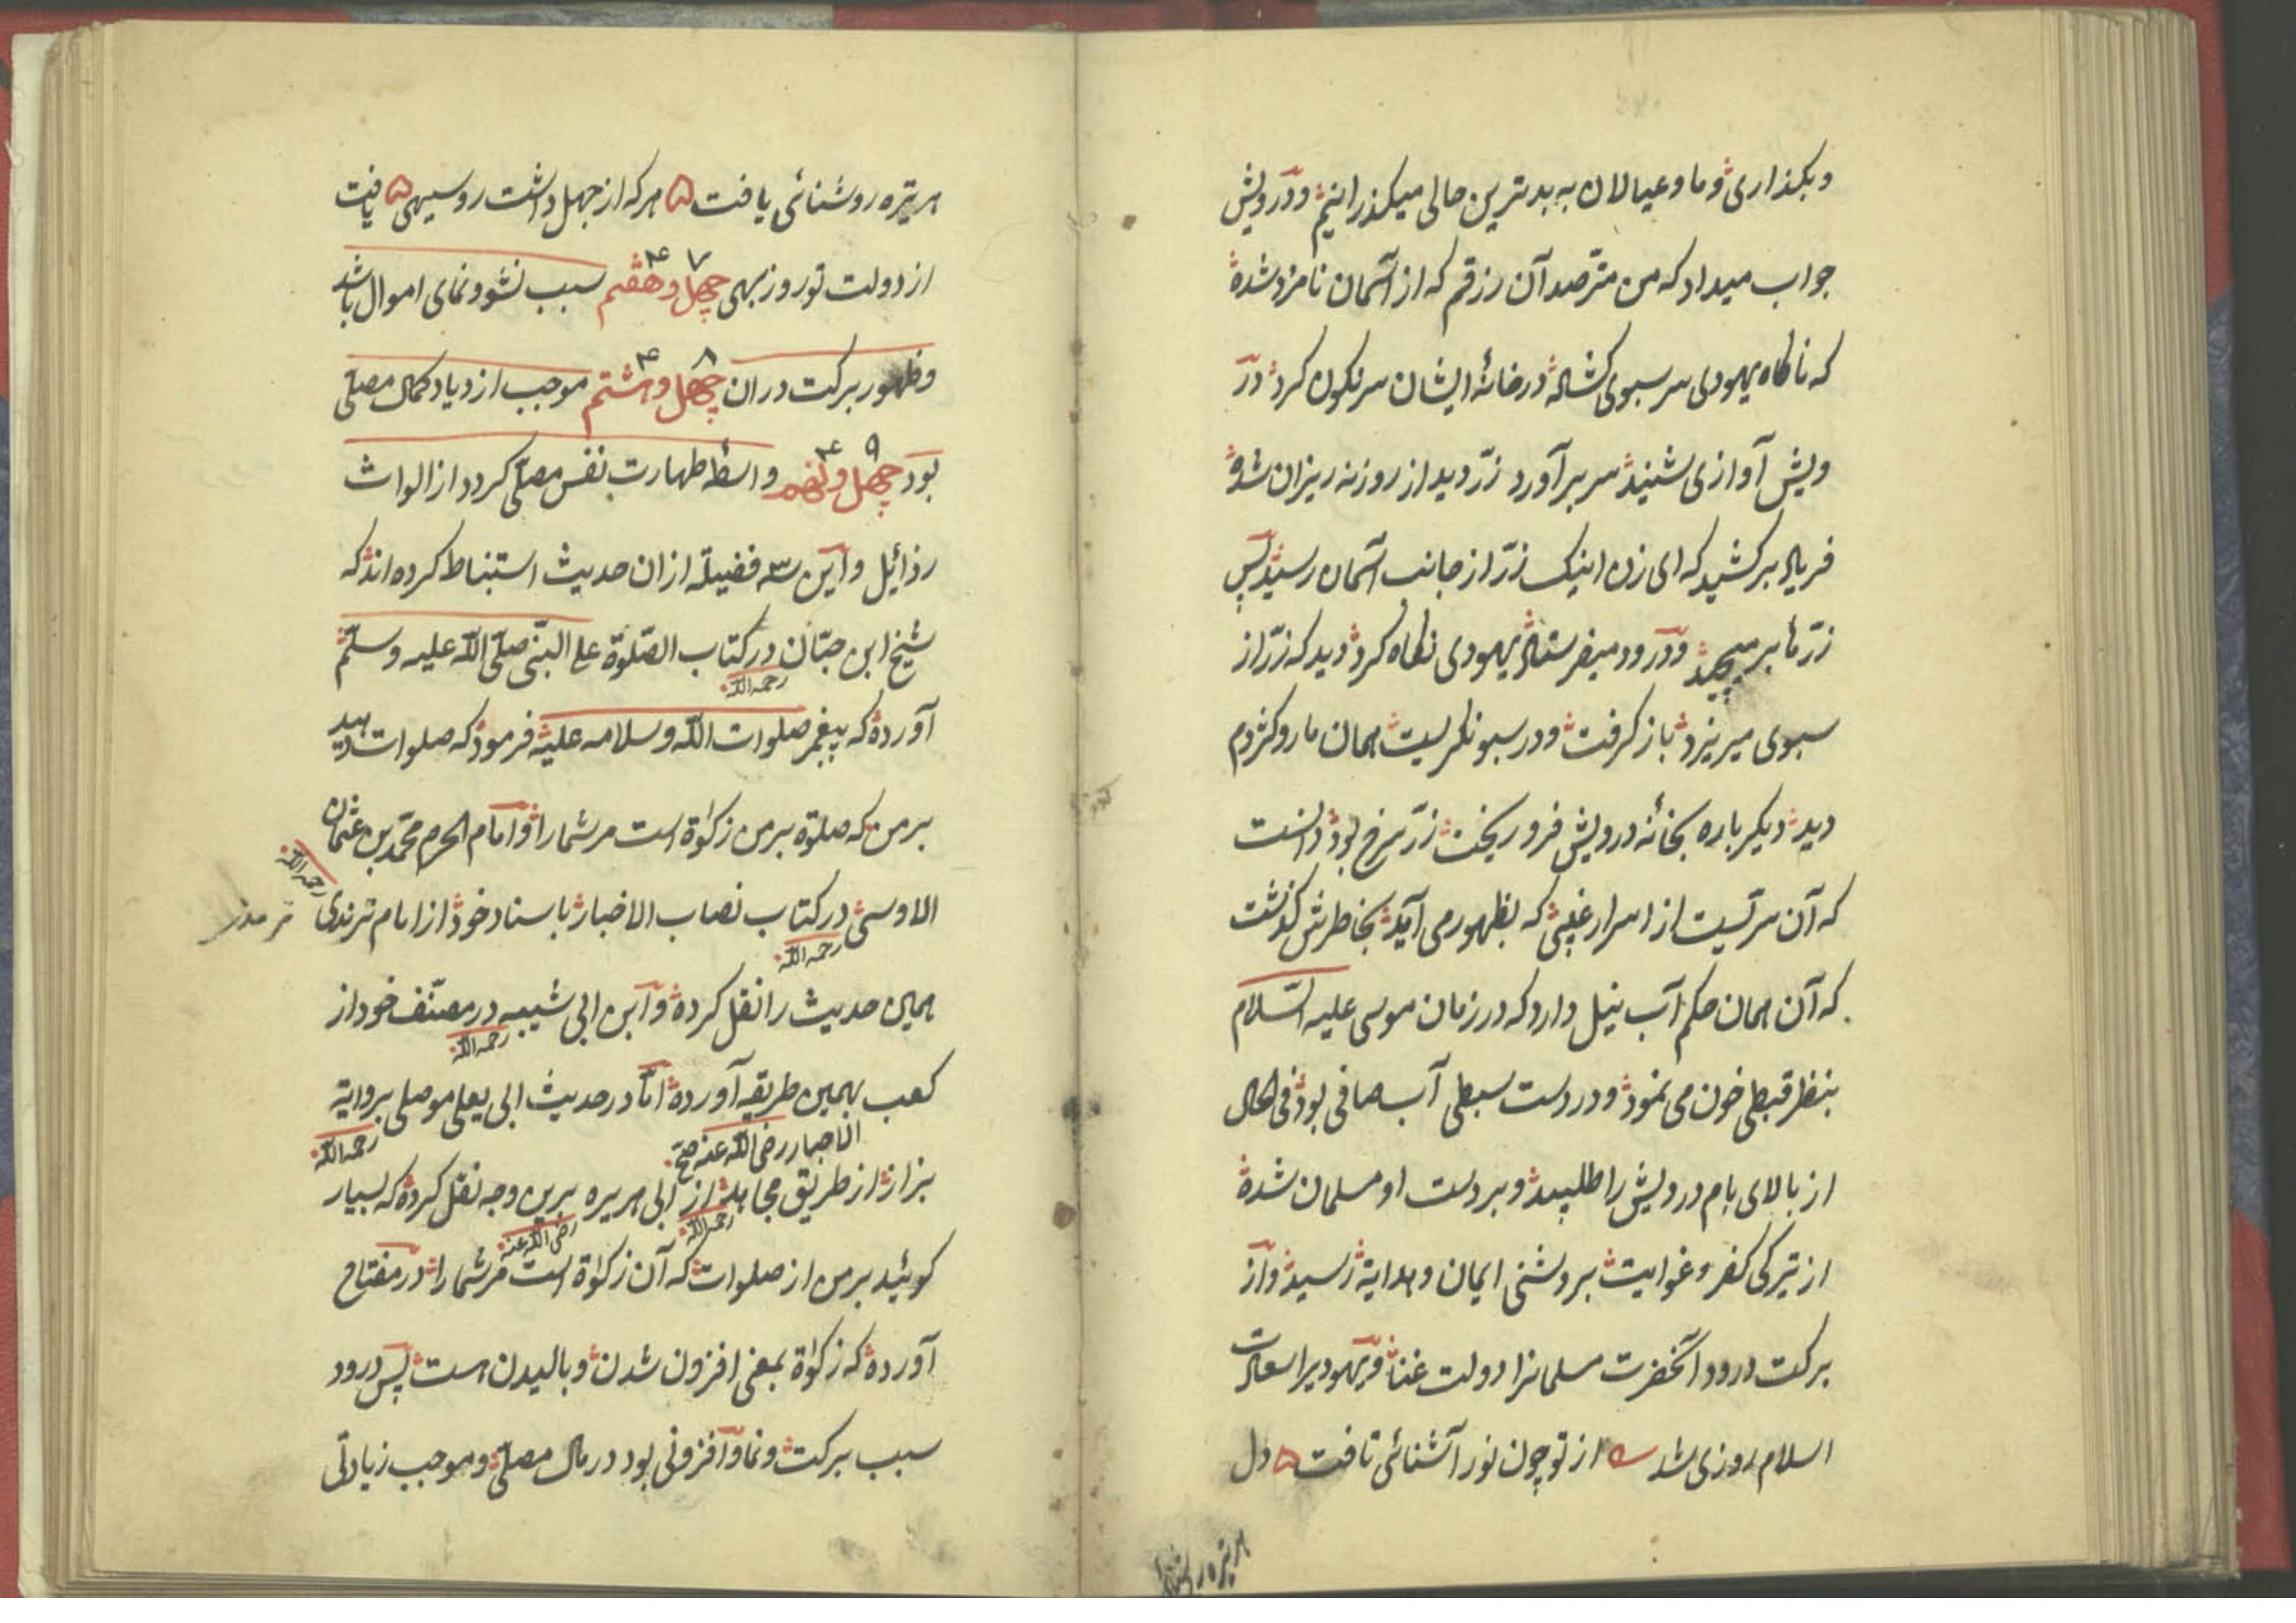 وبگذاری وما وعیالان به بدترین حالی میگذرانیم ودرویش
جواب میداد که من مترصد آن رزقم که از آسمان نامزد شده
که ناگاه یهودی سر سبوی گشاده درخانهٔ ایشان سرنگون کرد در
ویش آوازی شنید سر برآورد زر دید از روزنه ریزان شده
فریاد برکشید که ای زن اینک زر از جانب آسمان رسید پس
زرها برمیچید ودرود میفرستاد یهودی نگاه کرد دید که زر از
سبوی میریزد باز گرفت ودر سبو نگریست همان مار وکژدم
دید دیگر باره بخانه درویش فرو ریخت زر سرخ بود دانست
که آن سریست از اسرار غیبی که بظهور می آید بخاطرش گذشت
که آن همان حکم آب نیل دارد که در زمان موسی علیه السّلام
بنظر قبطی خون می نمود ودر دست سبطی آب صافی بود فی الحال
از بالای بام درویش را طلبید وبر دست او مسلمان شده
از تیرگی کفر وغوایت بروشنی ایمان وهدایة رسید واز
برکت درود آنحضرت مسلمانرا دولت غنا ویهودیرا سعادت
اسلام روزی شد از تو چون نور آشنائی تافت دل
هر تیره روشنائی
هر تیره روشنائی یافت هرکه از جهل داشت روسیهی یافت
از دولت تو روز بهی چهل وهفتم ۴۷ سبب نشو ونمای اموال باشد
وظهور برکت دران چهل وهشتم ۴۸ موجب ازدیاد کمال مصلّی
بود چهل ونهم ۴۹ واسطهٔ طهارت نفس مصلّی گردد از الواث
رذائل واین سه فضیلة ازان حدیث استنباط کرده اند که
شیخ ابن حبّان درکتاب الصّلوة علی النّبی صلّی اللّه علیه وسلّم
رحمه اللّه
آورده که پیغمبر صلوات اللّه وسلامه علیه فرمود که صلوات دهید
بر من که صلوة بر من زکوٰة است مر شما را وامام الحرم محمّد بن عثمان
رحمه اللّه
الاوسی درکتاب نصاب الاخبار باسناد خود از امام ترندی ترمذی
رحمه اللّه
همین حدیث را نقل کرده وابن ابی شیبه در مصنّف خود از
رحمه اللّه
کعب بهمین طریقه آورده امّا در حدیث ابی یعلی موصلی بروایة
الاحبار رضی اللّه عنه صح
رحمه اللّه
بزاز از طریق مجاهد از ابی هریره برین وجه نقل کرده که بسیار
رحمه اللّه
رضی اللّه عنه
گوئید بر من از صلوات که آن زکوٰة است مر شما را در مفتاح
آورده که زکوٰة بمعنی افزون شدن وبالیدن است پس درود
سبب برکت ونما وافزونی بود در مال مصلّی وموجب زیادتی